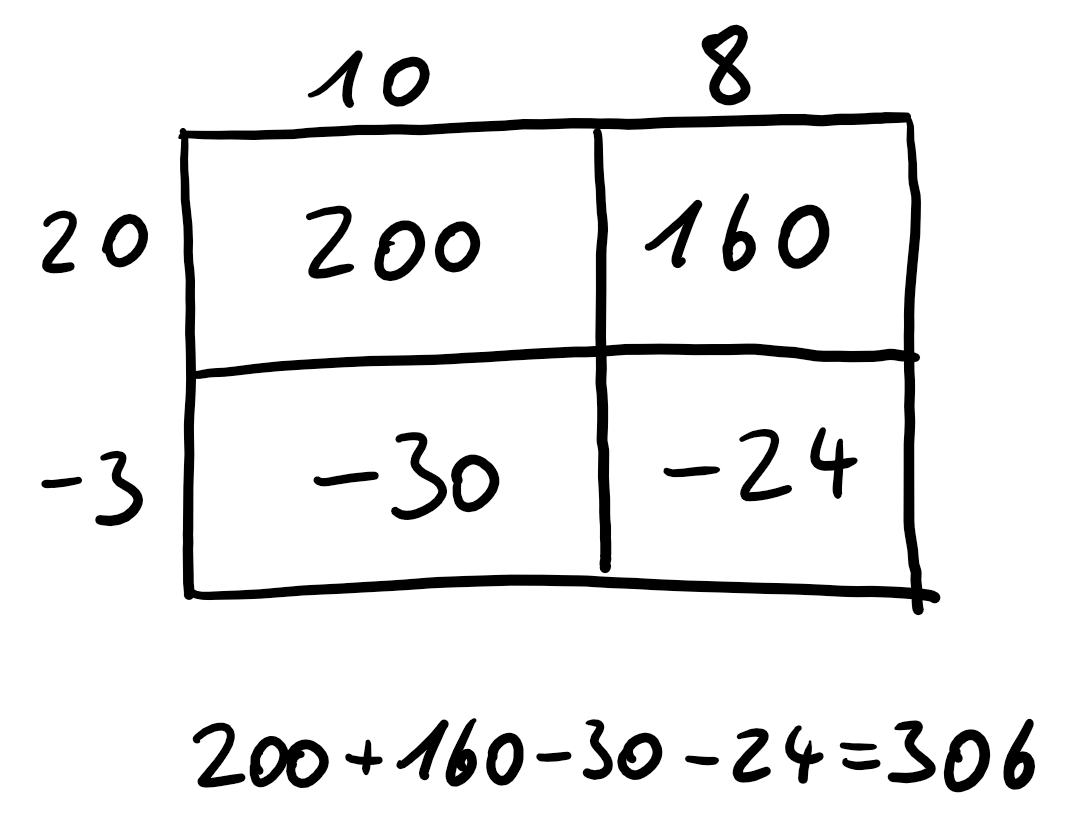 10 8
20 200 160
-3 -30 -24
200+160-30-24=306